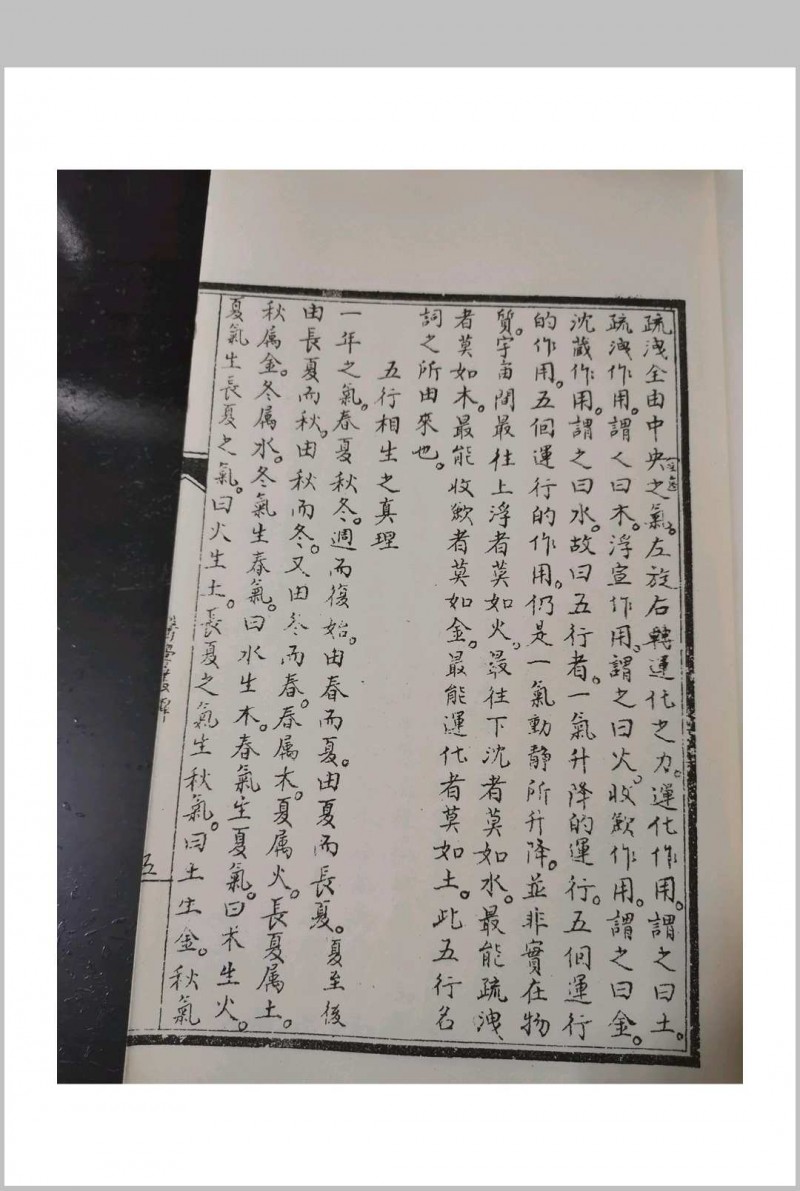 疏洩全由中央之氣。左旋右轉運化之力。運化作用。謂之曰土。
疏洩作用。謂之曰木。浮宣作用。謂之曰火。收歛作用。謂之曰金。
沈藏作用。謂之曰水。故曰五行者。一氣升降的運行。五個運行
的作用。五個運行的作用。仍是一氣動靜所升降。並非實在物
質。宇宙間最往上浮者莫如火。最往下沈者莫如水。最能疏洩
者莫如木。最能收歛者莫如金。最能運化者莫如土。此五行名
詞之所由來也。
五行相生之真理
一年之氣。春夏秋冬。週而復始。由春而夏。由夏而長夏。夏至後
由長夏而秋。由秋而冬。又由冬而春。春属木。夏属火。長夏属土。
秋属金。冬属水。冬氣生春氣。曰水生木。春氣生夏氣。曰木生火。
夏氣生長夏之氣。曰火生土。長夏之氣生秋氣。曰土生金。秋氣
五